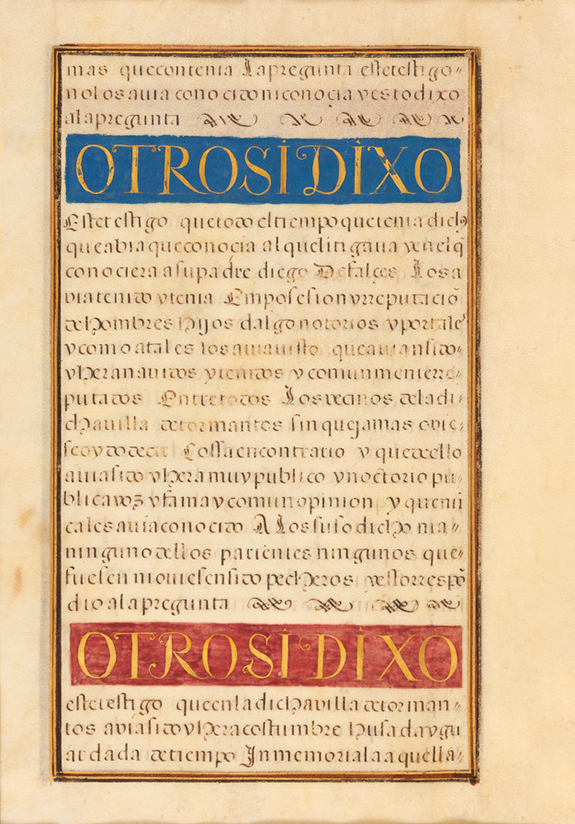 mas que contenia la pregunta este testigo
no los auia conocido ni conocia y esto dixo
a la pregunta
OTROSI DIXO
Este testigo que todo el tiempo que tenia dich
que abia que conocia al que litigaua y en el q̄
conociera a su padre diego De falces Los a
uia tenido y tenia En posesion y rreputaciō
de hombres hijos dalgo notorios y por tales
y como a tales los auia uisto que auian sido
y heran auidos y tenidos y comunmente rre
putados Entre todos Los vecinos de la di
cha uilla de tormantos sin que jamas ouie
se oydo decir Cossa en contrario y que dello
auia sido y hera muy publico y noctorio pu
blica voz y fama y comun opinion y que nū
ca les auia conocido A Los suso dicho ma
nin guno dellos parientes ningunos que
fuesen ni ouiesen sido pecheros y esto rrespō
dio a la pregunta
OTROSI DIXO
este testigo que en la dicha uilla de torman
tos auia sido y hera costumbre husada y gu
ardada de tiempo Inmemorial a aquella